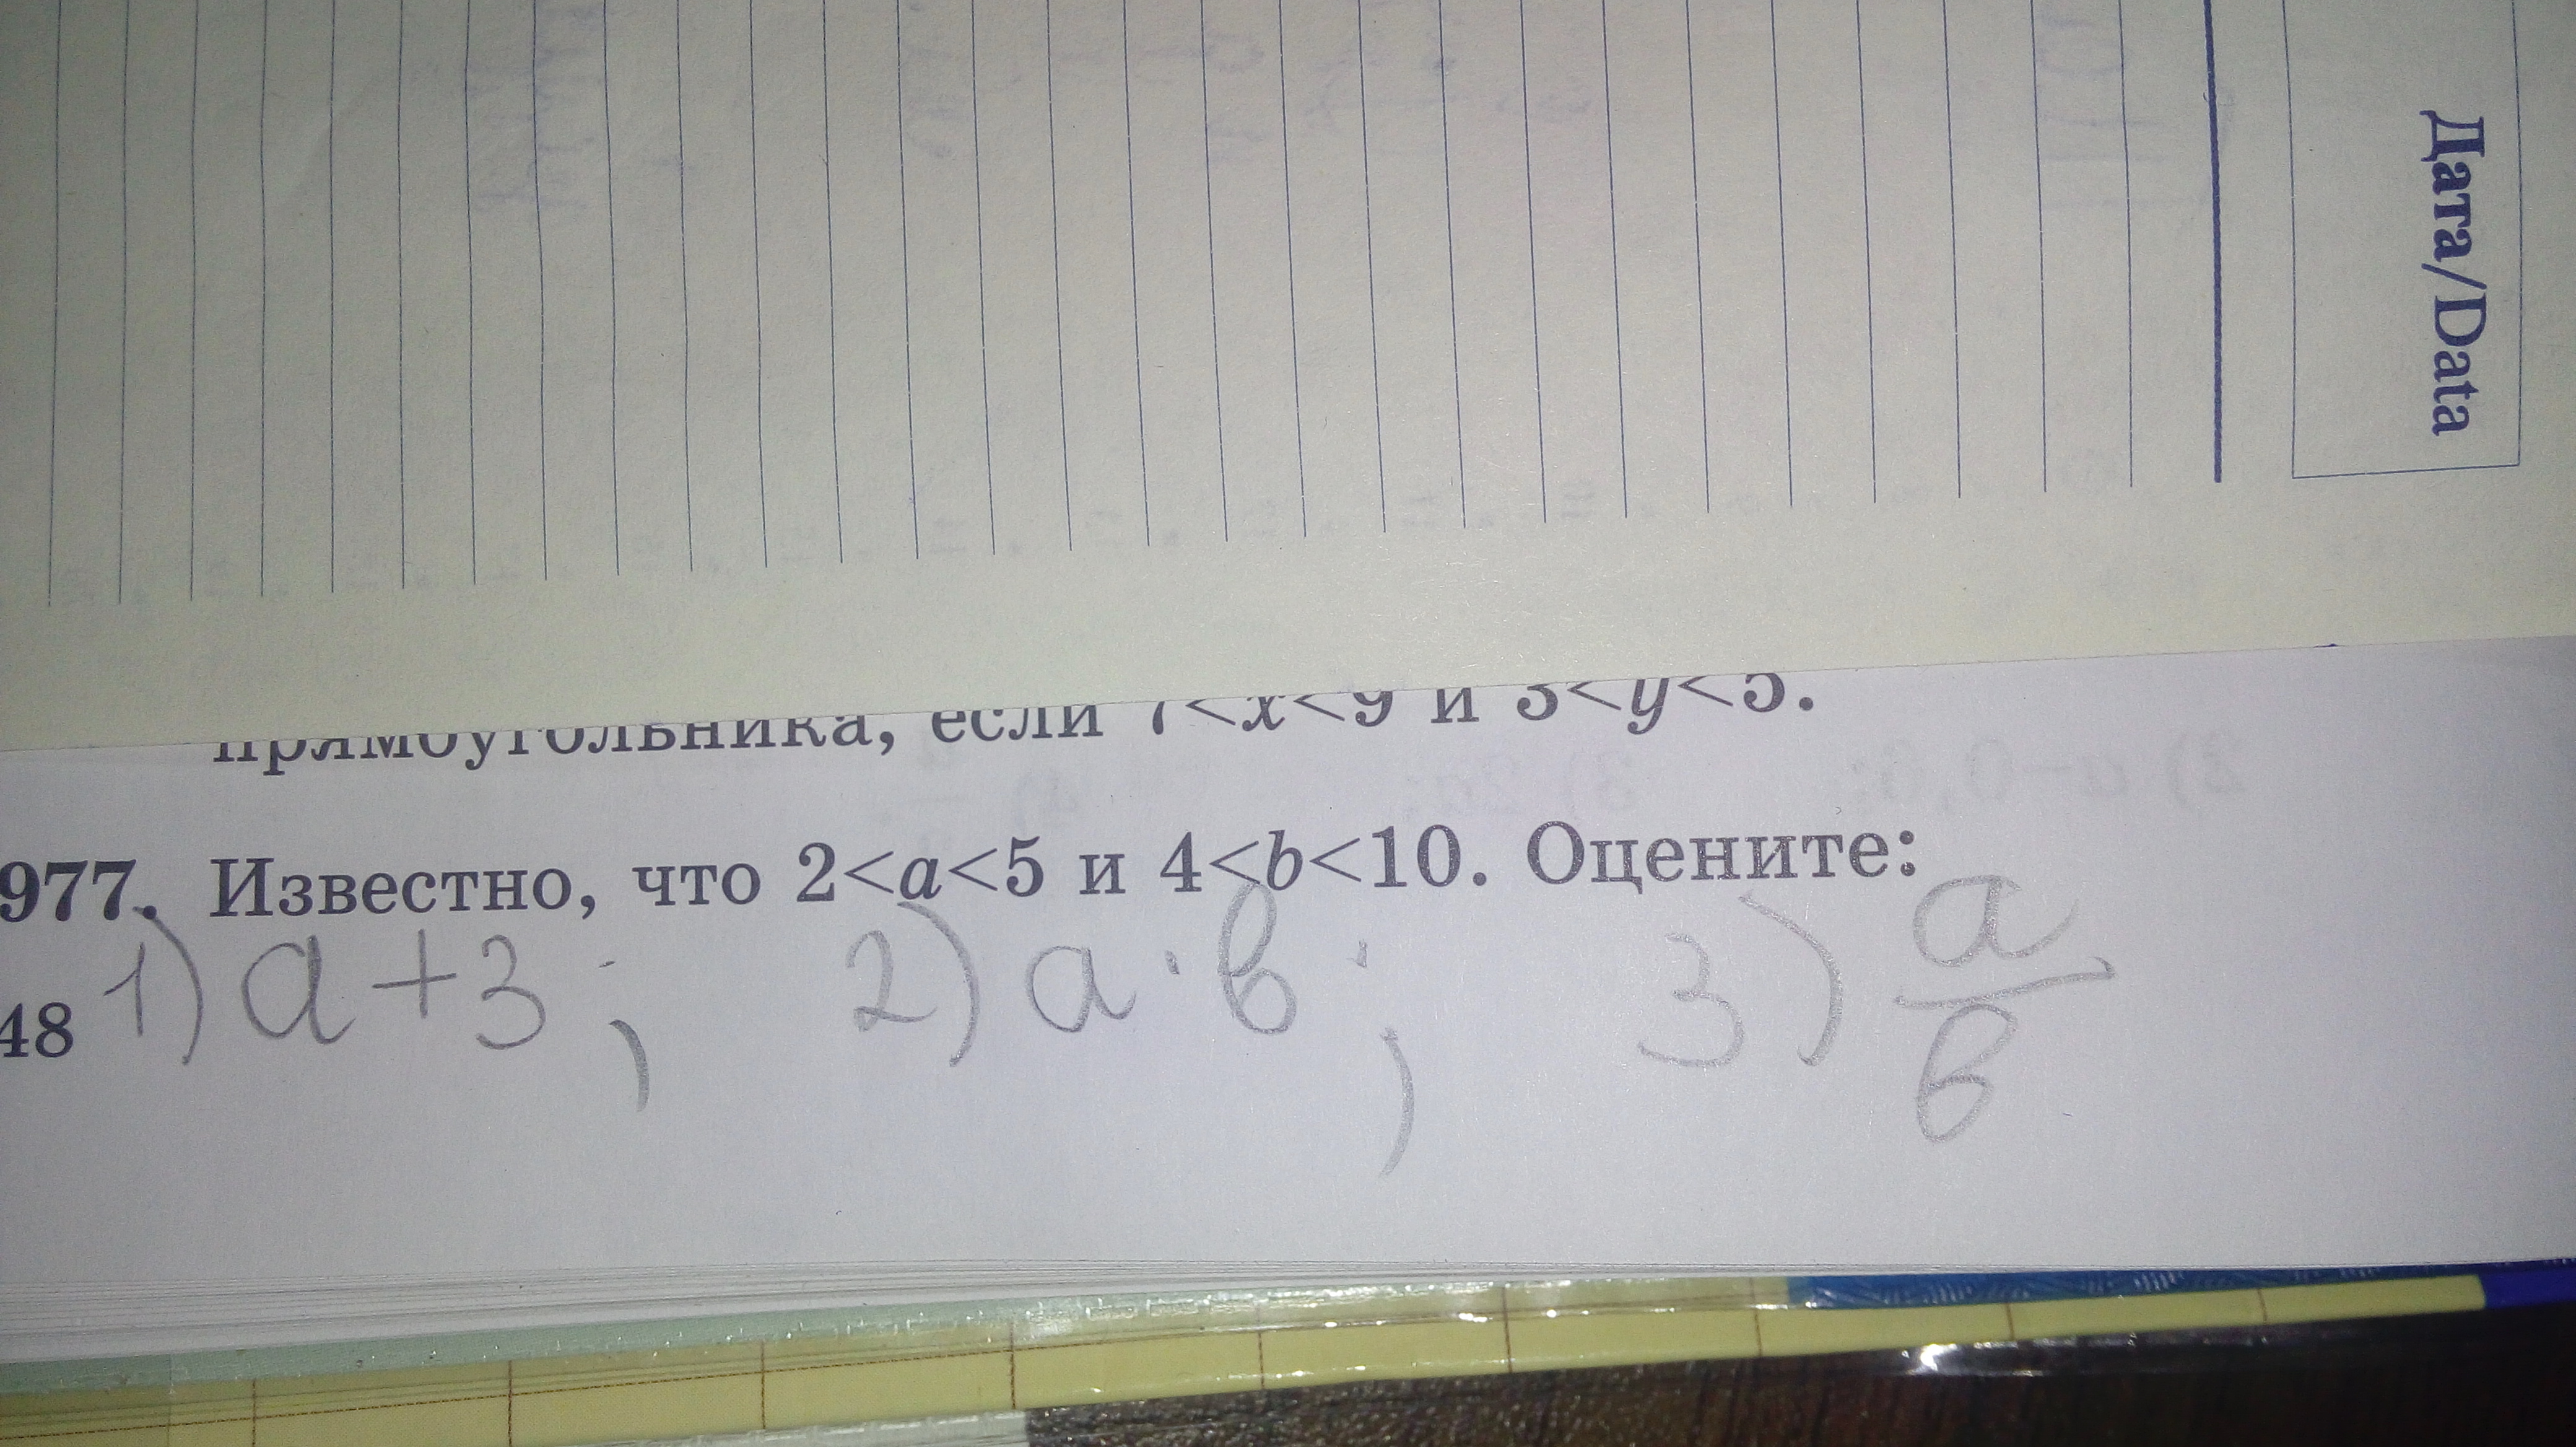 Дата/Data
прямоугольника, если 7<x<9 и 3<y<5.
977. Известно, что 2<a<5 и 4<b<10. Оцените:
1) a+3; 2) a·b; 3) a/b
48